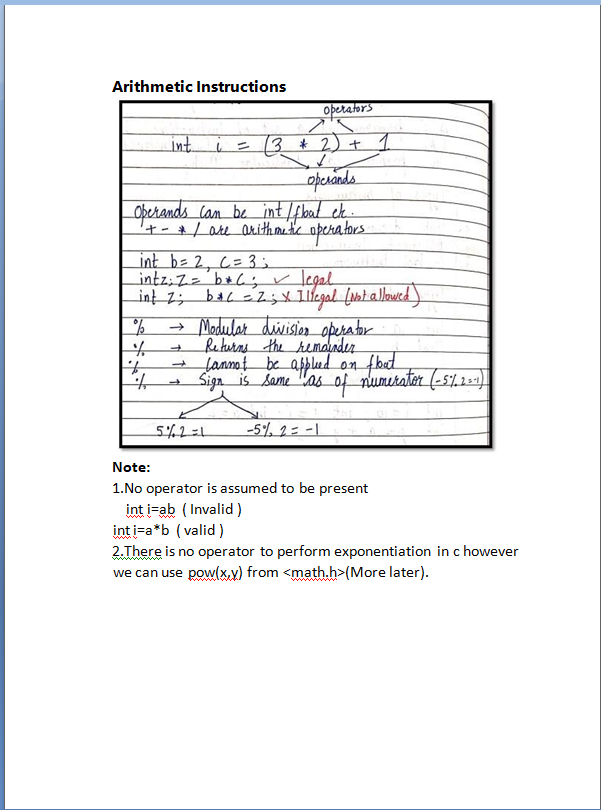 Arithmetic Instructions
operators
int i = (3 * 2) + 1
operands
Operands can be int/float etc.
+ - * / are arithmetic operators
int b= 2, C= 3;
intz; Z= b*C; ✓ legal
int Z; b*C = Z; X Illegal (Not allowed)
% → Modular division operator
% → Returns the remainder
% → Cannot be applied on float
% → Sign is same as of numerator (-5%2=-1)
5%2=1 -5%2=-1
Note:
1.No operator is assumed to be present
int i=ab ( Invalid )
int i=a*b ( valid )
2.There is no operator to perform exponentiation in c however
we can use pow(x,y) from <math.h>(More later).